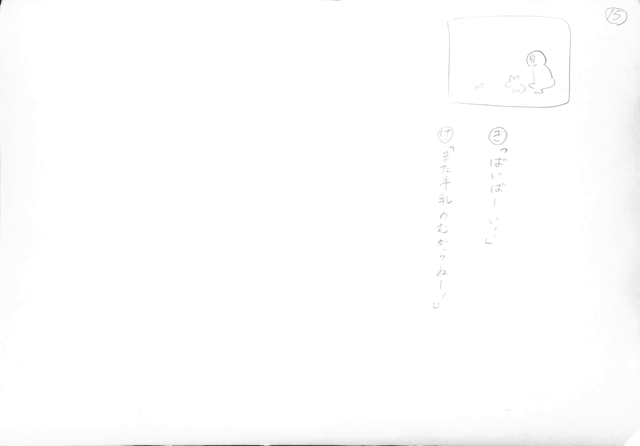 ⑮
㋖「ばいばーい!」
㋘「また牛乳のむからねー!」